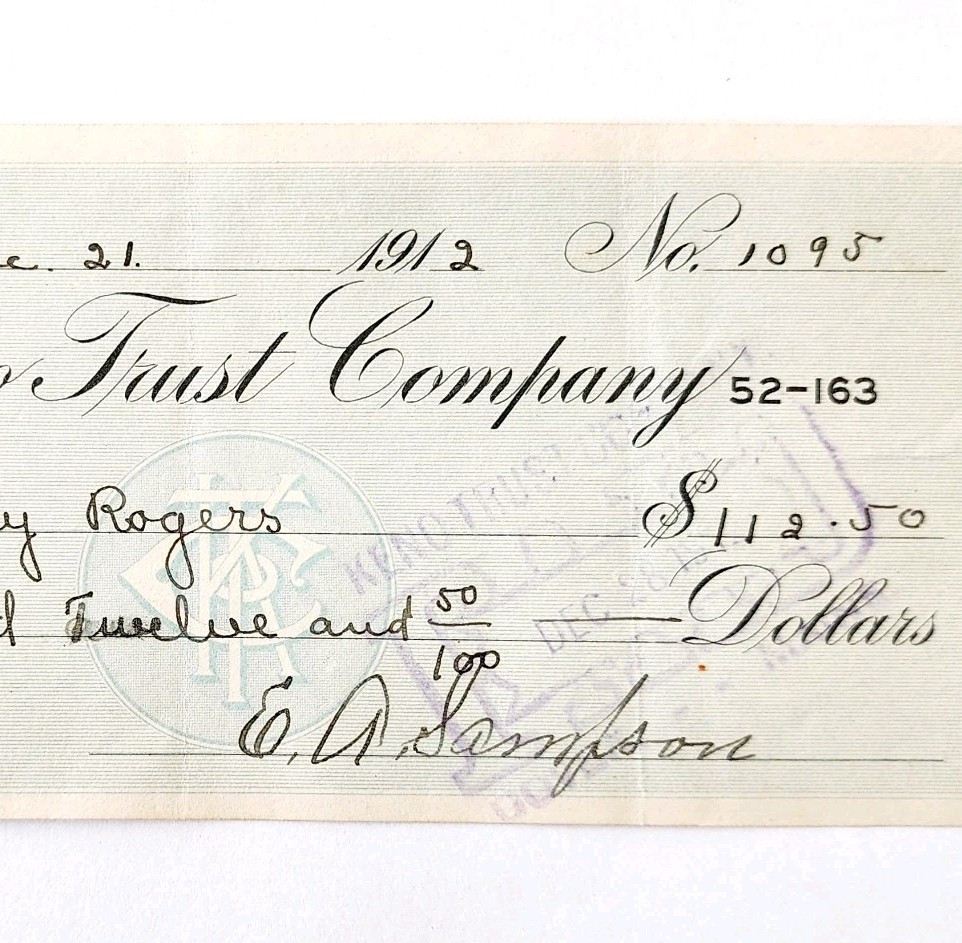 c. 21. 1912 No. 1095
o Trust Company 52-163
y Rogers $112.50
d Twelve and 50/100 Dollars
E. A. Sampson
KENO TRUST CO
DEC 28